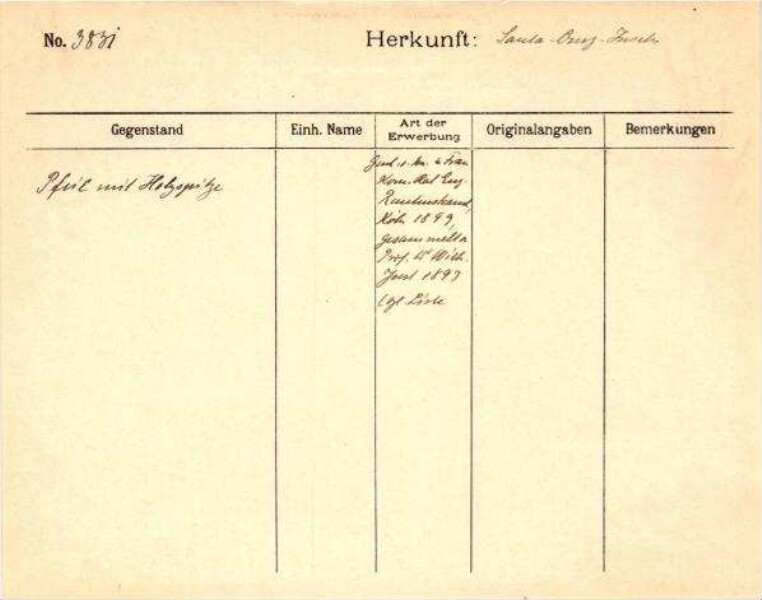 No. 3831
Herkunft: Santa-Cruz-Inseln
Gegenstand
Einh. Name
Art der
Erwerbung
Originalangaben
Bemerkungen
Pfeil mit Holzspitze
Frau
Kom. Rat Eug.
Rautenstrauch,
Köln 1899,
gesammelt v.
Prof. Dr Wilh.
Joest 1897
Liste